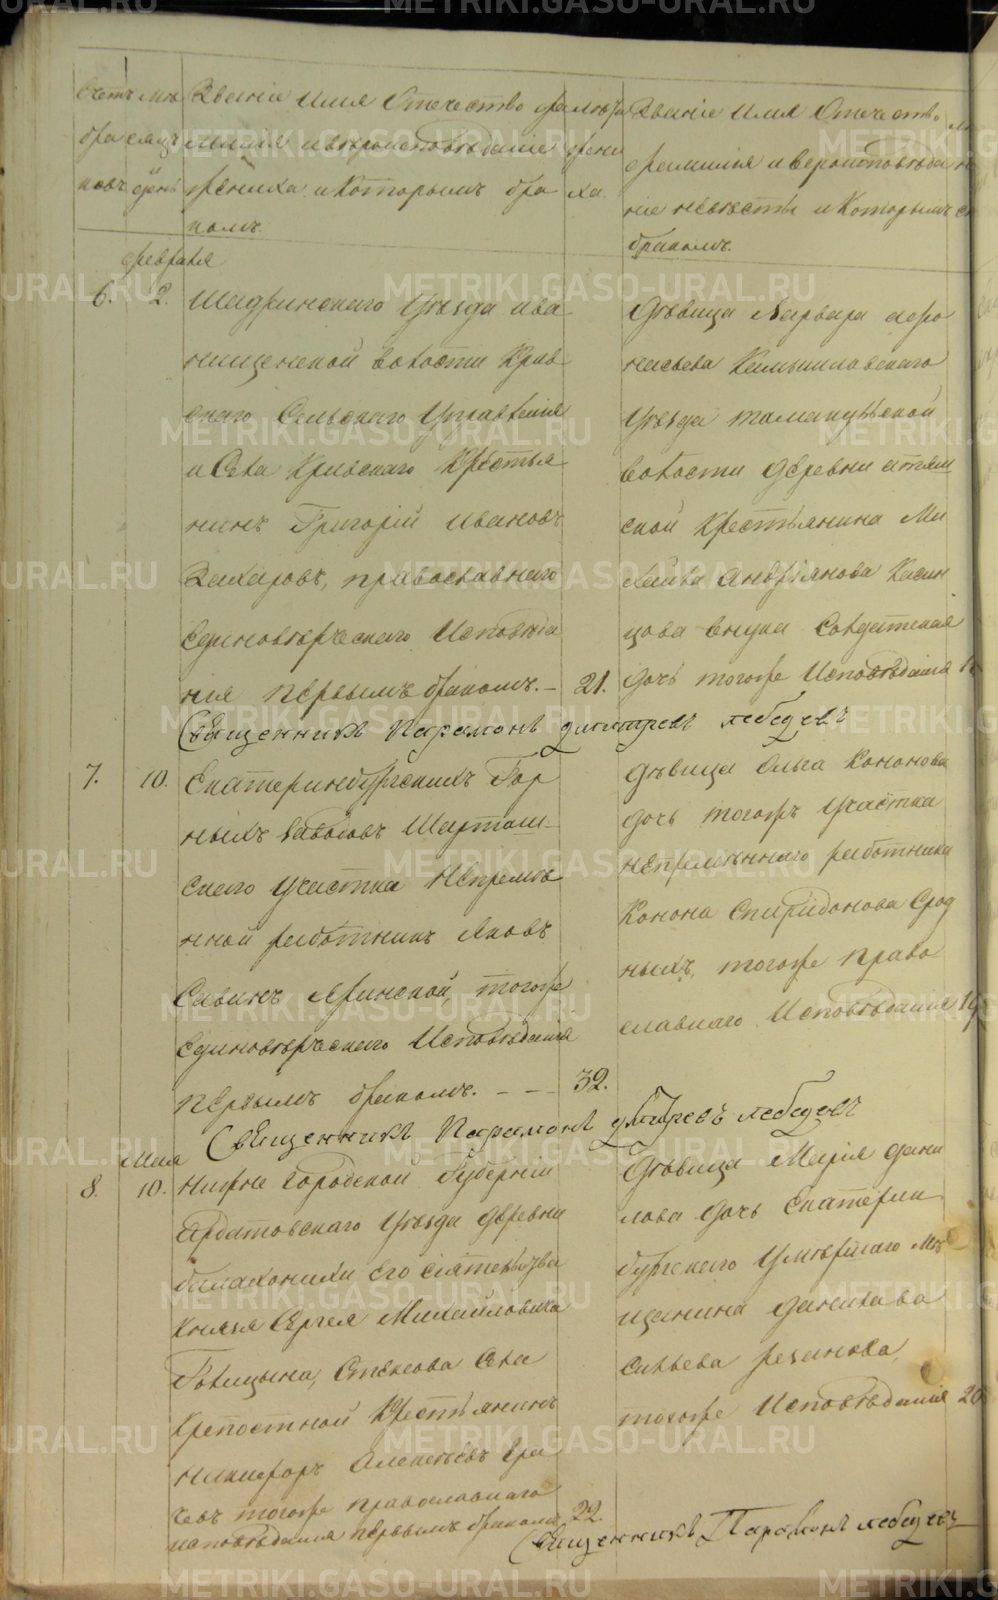 Счетъ
бра
ковъ
Мѣ
сяцъ
день
Званіе Имя Отечество фами
лія и вѣроисповѣданіе
жениха и Которымъ бра
комъ
жени
ха.
Званіе Имя Отечество
фамилія и вероисповѣда
ніе невѣсты и Которымъ
бракомъ.
февраля
6. 2.
Шадринскаго Уѣзда ива
нищенской волости Крив
скаго Сельскаго Управленія
и Села Кривскаго Крестья
нинъ Григорій Ивановъ
Захаровъ, православнаго
Единовѣрческаго Исповѣда
нія первымъ бракомъ. — 21.
Дѣвица Варвара Афо
насьева Камышловскаго
Уѣзда Тамакульской
волости деревни
ской Крестьянина Ми
хайла Андріянова
цова внука Солдатская
дочь тогоже Исповѣданія
Священникъ Парамонъ Димитревъ Лебедевъ
7. 10.
Екатеринбургскихъ Гор
ныхъ Заводовъ Шарташ
скаго участка Непремѣ
нной работникъ Яковъ
Савинъ Яринской, тогоже
Единовѣрческаго Исповѣданія
первымъ бракомъ. — — 32.
Дѣвица Ольга Кононова
дочь тогожъ участка
непремѣннаго работника
Конона Спиридонова Срод
ныхъ, тогоже право
славнаго Исповѣданія 19
Священникъ Парамонъ Дмитревъ Лебедевъ
Мая
8. 10.
Ниже Городской Губерніи
Ардатовскаго Уѣзда деревни
Балахонихи Его сіятельства
Князя Сергея Михайловича
Голицына, Стексова Села
Крепостной Крестьянинъ
Никифоръ Алексѣевъ
чевъ тогоже православнаго
исповѣданія первымъ бракомъ 22.
Дѣвица Марія Дани
лова дочь Екатерин
бургскаго Умѣршаго Мѣ
щанина Данилава
Савельева Резанова,
тогоже Исповѣданія 20
Священникъ Парамонъ Лебедевъ
METRIKI.GASO-URAL.RU